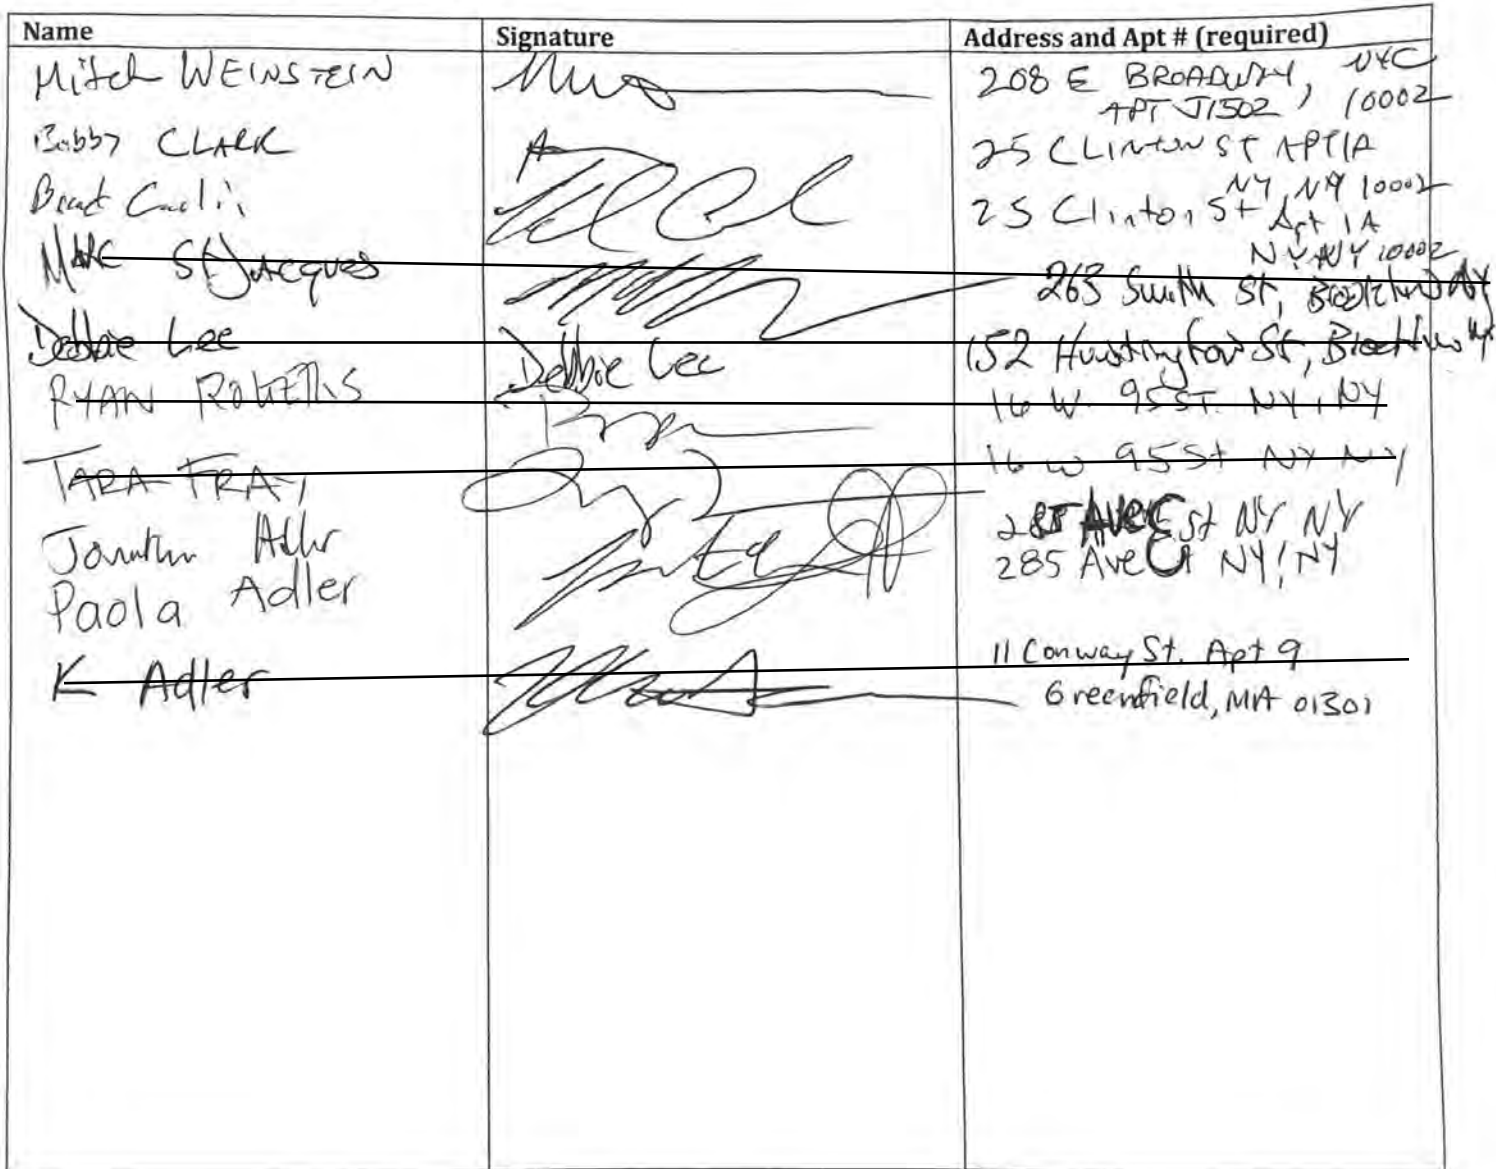 Name Signature Address and Apt # (required)
Mitch WEINSTEIN 208 E BROADWAY, NYC
APT J1502, 10002
Bobby CLARK 25 CLINTON ST APT 1A
NY, NY 10002
25 Clinton St Apt 1A
NY NY 10002
Marc St Jacques 263 Smith St, Brooklyn NY
Debbie Lee Debbie Lee 152 Huntington St, Brooklyn NY
RYAN 16 W. 95 ST. NY, NY
TARA 16 W 95 St NY NY
Adler 285 Ave C St NY NY
Paola Adler 285 Ave C NY, NY
K Adler 11 Conway St. Apt 9
Greenfield, MA 01301